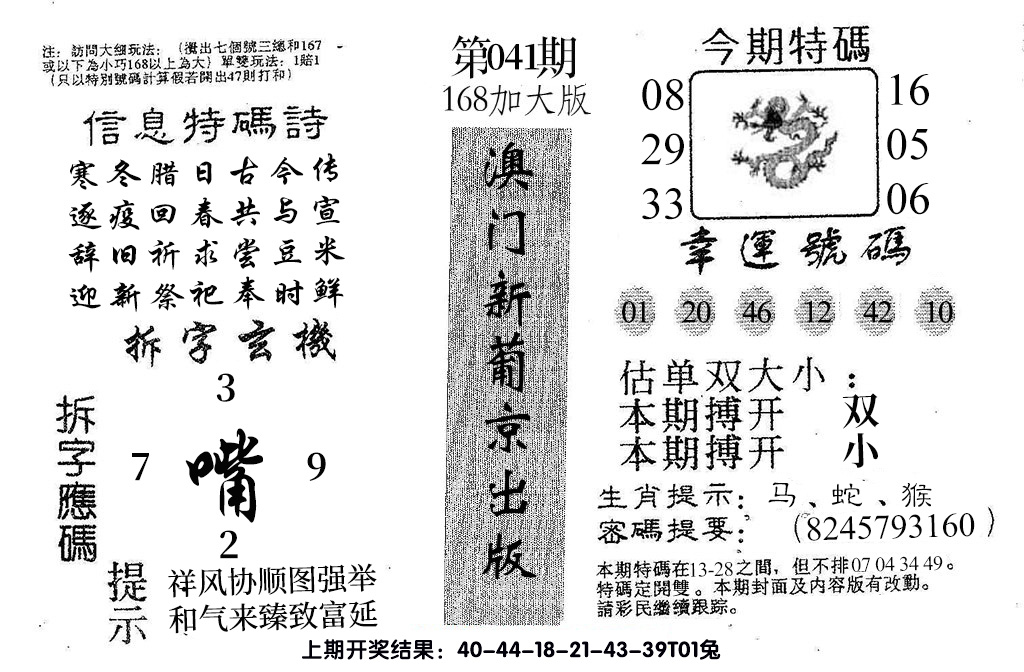 注：訪問大細玩法：（攪出七個號三總和167
或以下為小巧168以上為大）單雙玩法：1賠1
（只以特別號碼計算假若開出47則打和）
信息特碼詩
寒冬腊日古今传
逐疫回春共与宣
辞旧祈求尝豆米
迎新祭祀奉时鲜
拆字玄機
拆字應碼
3
7 嘴 9
2
提示
祥风协顺图强举
和气来臻致富延
第041期
168加大版
澳门新葡京出版
今期特碼
08 16
29 05
33 06
幸運號碼
01 20 46 12 42 10
估单双大小：
本期搏开 双
本期搏开 小
生肖提示：马、蛇、猴
密碼提要：（8245793160）
本期特碼在13-28之間，但不排07 04 34 49。
特碼定開雙。本期封面及内容版有改動。
請彩民繼續跟踪。
上期开奖结果：40-44-18-21-43-39T01兔